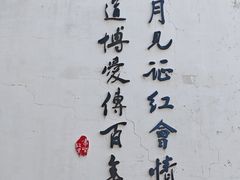 月见证红會情
道博愛傳百年